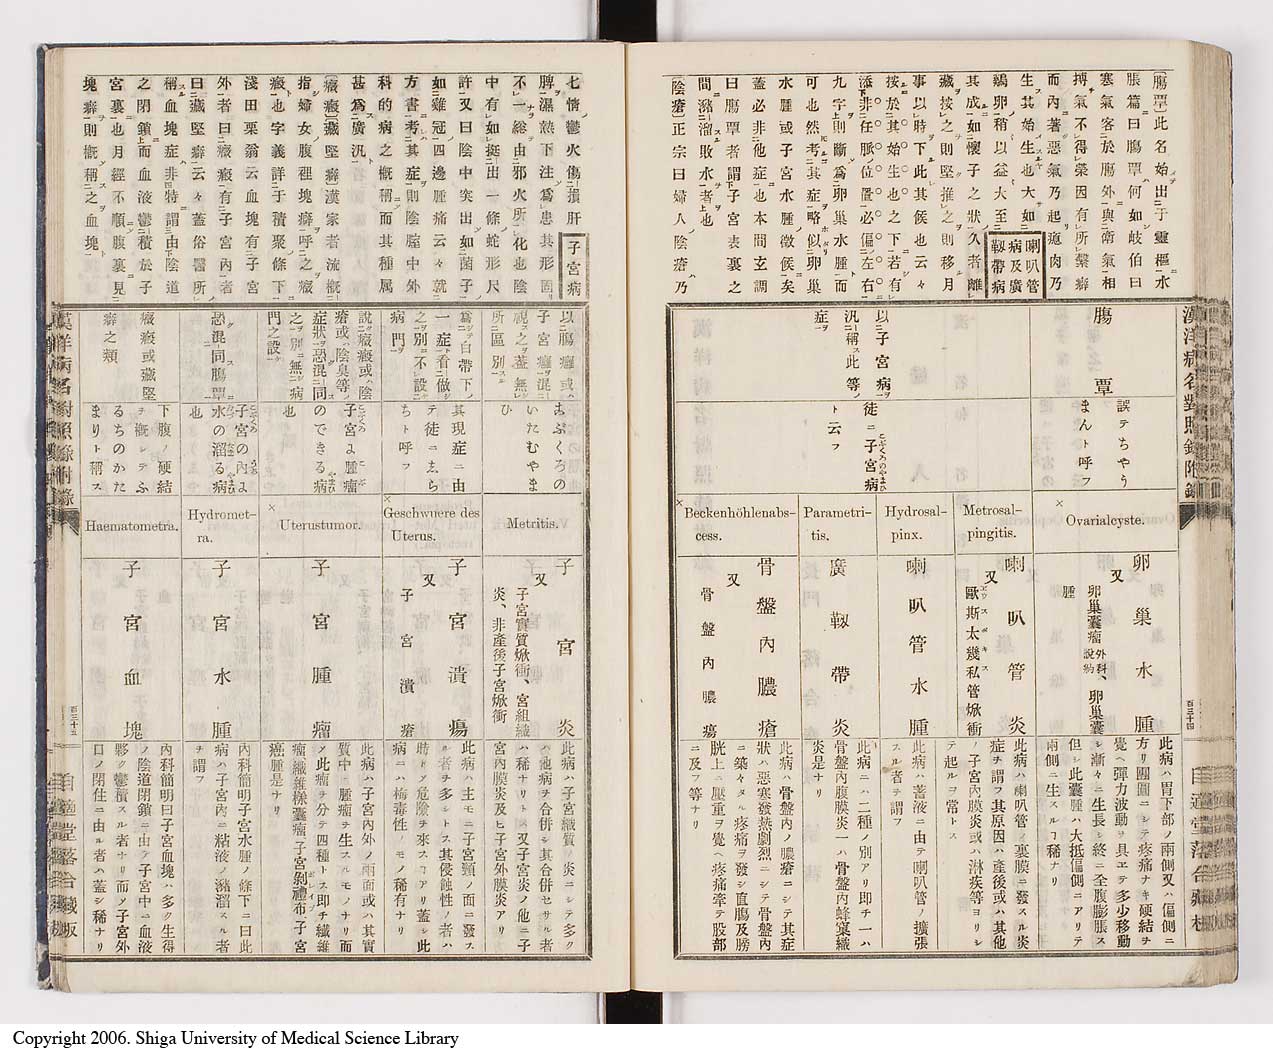 [腸覃]此名始出于靈樞水
脹篇曰腸覃何如岐伯曰
寒氣客於腸外與衛氣相
搏氣不得榮因有所繫癖
而內著惡氣乃起瘜肉乃
生其始生也大如
鷄卵稍以益大至
其成如懷子之狀久者離
歲按之則堅推之則移月
事以時下此其候也云々
按於其始生也之下若有
添非任脈ノ位置必偏左右
九字則斷爲卵巢水腫而
可也然考其症略似卵巢
水腫或子宮水腫ノ徵候矣
蓋必非他症也本間玄調
曰腸覃者謂子宮表裏之
間瀦溜敗水者也
[陰瘡]正宗曰婦人陰瘡乃
喇叭管
病及廣
靱帶病
漢洋病名對照錄附錄
百三十四
自適堂落合藏板
腸覃
誤テちやう
まんト呼フ
Ovarialcyste.
卵巢水腫
又
卵巢囊瘤外科說約、卵巢囊
腫
此病ハ胃下部ノ兩側又ハ偏側ニ
方リ圓圖ニシテ疼痛ナキ硬結ヲ
覺ヘ彈力波動ヲ具エテ多少移動
シ漸々ニ生長シ終ニ全腹膨脹ス
但シ此囊腫ハ大抵偏側ニアリテ
兩側ニ生スルコ稀ナリ
Metrosal-
pingitis.
喇叭管炎
又
歐斯太幾私管焮衝
エウスタキス
此病ハ喇叭管ノ裏膜ニ發スル炎
症ヲ謂フ其原因ハ產後或ハ其他
ノ子宮內膜炎或ハ淋疾等ヨリシ
テ起ルヲ常トス
Hydrosal-
pinx.
喇叭管水腫
此病ハ蓄液ニ由テ喇叭管ノ擴張
スル者ヲ謂フ
以子宮病
汎稱此等
症
徒ニ子宮病
ト云フ
Parametri-
tis.
廣靱帶炎
此病ニハ二種ノ別アリ即チ一ハ
骨盤內腹膜炎一ハ骨盤內蜂窠織
炎是ナリ
Beckenhöhlenabs-
cess.
骨盤內膿瘡
又
骨盤內膿瘍
此病ハ骨盤內ノ膿瘡ニシテ其症
狀ハ惡寒發熱劇烈ニシテ骨盤內
ニ築々タル疼痛ヲ發シ直腸及膀
胱上ニ壓重ヲ覺ヘ疼痛牽テ股部
ニ及フ等ナリ
七情鬱火傷損肝
脾濕熱下注爲患其形固
不一總由邪火所化也陰
中有如挺出一條蛇形尺
許又曰陰中突出如菌子
如雞冠四邊腫痛云々就
方書考其症則陰膣中外
科的病之概稱而其種属
甚爲廣汎
[癥瘕][藏堅癖]漢家者流概
指婦女腹裡塊癖呼之癥
瘕也字義詳于積聚條下
淺田栗翁云血塊有子宮
外者曰癥瘕有子宮內者
曰藏堅癖云々蓋俗醫所
稱血塊症非特謂由陰道
之閉鎖而血液鬱積於子
宮裏也月經不順腹裏見
塊癖則概稱之血塊
子宮病
以腸癰或ハ
子宮癰混
視之蓋無
所區別
Metritis.
子宮炎
又
子宮實質焮衝、宮組織
炎、非產後子宮焮衝
此病ハ子宮織質ノ炎ニシテ多ク
ハ他病ヲ合併シ其合併セサル者
ハ稀ナリトス又子宮炎ノ他ニ子
宮內膜炎及ヒ子宮外膜炎アリ
爲白帶下ノ
一症看做
之別不設
病門
其現症ニ由
テ徒ニまら
ちト呼フ
Geschwuere des
Uterus.
子宮潰瘍
又
子宮潰瘡
此病ハ主モニ子宮頸ノ面ニ發ス
ル者ヲ多シトス其侵蝕性ノ者ハ
時トメ危險ヲ來スコアリ蓋シ此
病ニハ梅毒性ノモノ稀有ナリ
說癥瘕或ハ陰
瘡或ハ陰臭等
症狀恐混同
之別無病
門之設
子宮よ腫瘤
のできる病
也
Uterustumor.
子宮腫瘤
此病ハ子宮內外ノ兩面或ハ其實
質中ニ腫瘤ヲ生スルモノナリ而
ノ此瘤ヲ分テ四種トス即チ纖維
瘤、纖維樣囊瘤、子宮剝禮布、子宮
癌腫是ナリ
恐混同腸覃
子宮の內よ
水の溜る病
也
Hydromet-
ra.
子宮水腫
內科簡明子宮水腫ノ條下ニ曰此
病ハ子宮內ニ粘液ノ瀦溜スル者
ヲ謂フ
癥瘕或藏堅
癖之類
下腹ノ硬結
ヲ概シテふ
るちのかた
まりト稱ス
Haematometra.
子宮血塊
內科簡明曰子宮血塊ハ多ク生得
ノ陰道閉鎖ニ由テ子宮中ニ血液
夥ク鬱積スル者ナリ而メ子宮外
口ノ閉住ニ由ル者ハ蓋シ稀ナリ
百三十五
Copyright 2006. Shiga University of Medical Science Library